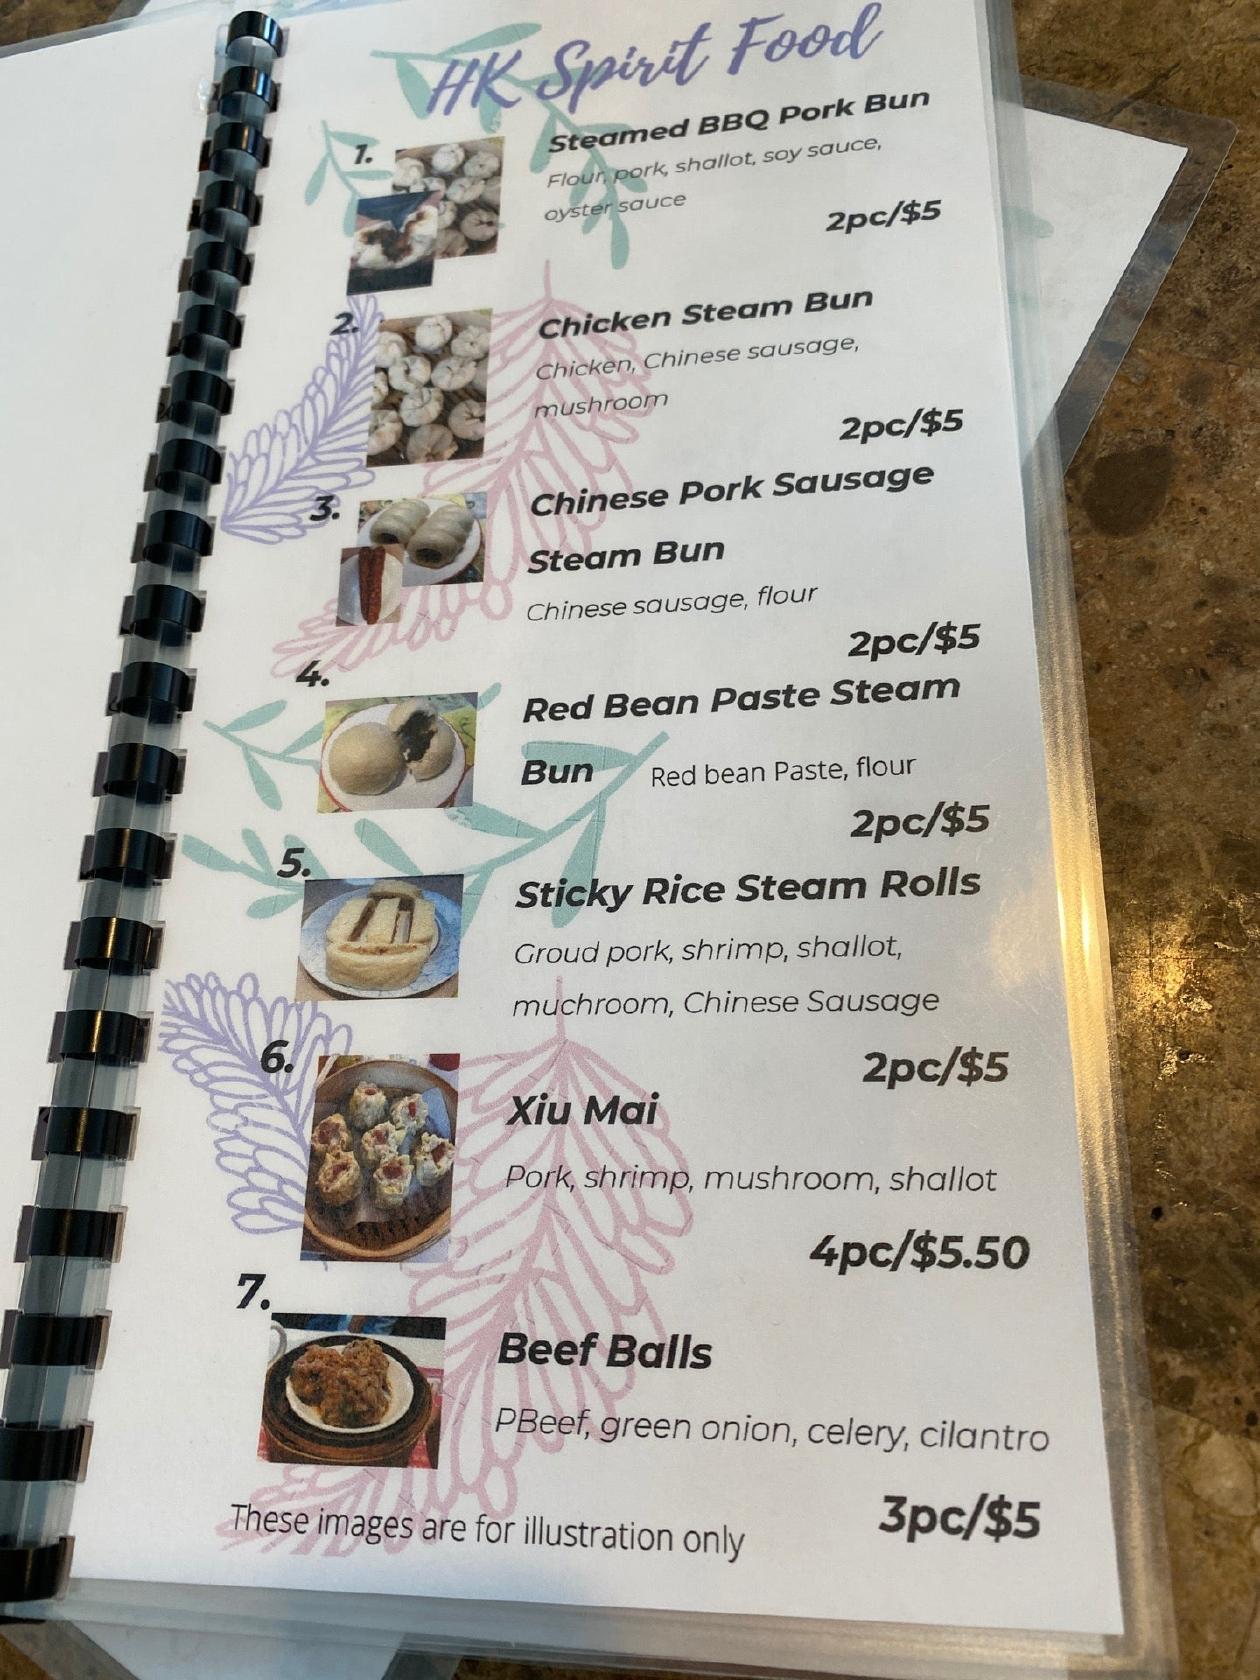 HK Spirit Food
1.
Steamed BBQ Pork Bun
Flour, pork, shallot, soy sauce,
oyster sauce
2pc/$5
2.
Chicken Steam Bun
Chicken, Chinese sausage,
mushroom
2pc/$5
3.
Chinese Pork Sausage
Steam Bun
Chinese sausage, flour
2pc/$5
4.
Red Bean Paste Steam
Bun Red bean Paste, flour
2pc/$5
5.
Sticky Rice Steam Rolls
Groud pork, shrimp, shallot,
muchroom, Chinese Sausage
2pc/$5
6.
Xiu Mai
Pork, shrimp, mushroom, shallot
4pc/$5.50
7.
Beef Balls
PBeef, green onion, celery, cilantro
3pc/$5
These images are for illustration only